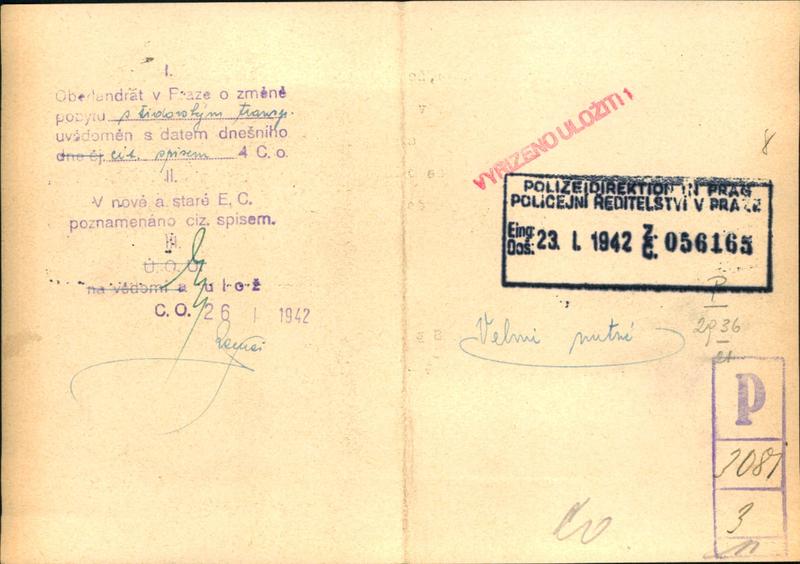 I.
Oberlandrát v Praze o změně
pobytu s židovským transp.
uvědoměn s datem dnešního
dne čj. cit. spisem 4 C. o.
II.
V nové a staré E. C.
poznamenáno ciz. spisem.
III.
Ú. O. O.
na vědomí a ulož
C. O. 26 I 1942
VYŘÍZENO ULOŽITI!
8
POLIZEIDIREKTION IN PRAG
POLICEJNÍ ŘEDITELSTVÍ V PRAZE
Eing: Doš: 23. I. 1942 Z. Č. 056165
P
2936
21
Velmi nutné
P
3081
3